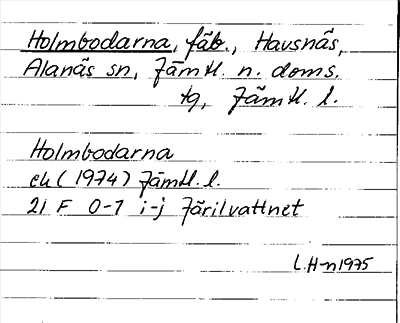 Holmbodarna, fäb., Havsnäs,
Alanäs sn, Jämtl. n. doms.
tg, Jämtl. l.
Holmbodarna
ek (1974) Jämtl. l.
21 F 0-1 i-j Järilvattnet
L.H-n 1975